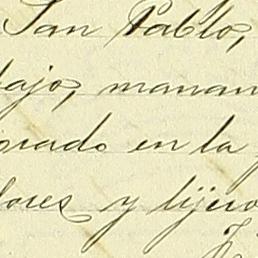 San Pablo,
bajo, manan
orado en la
lores y lijero